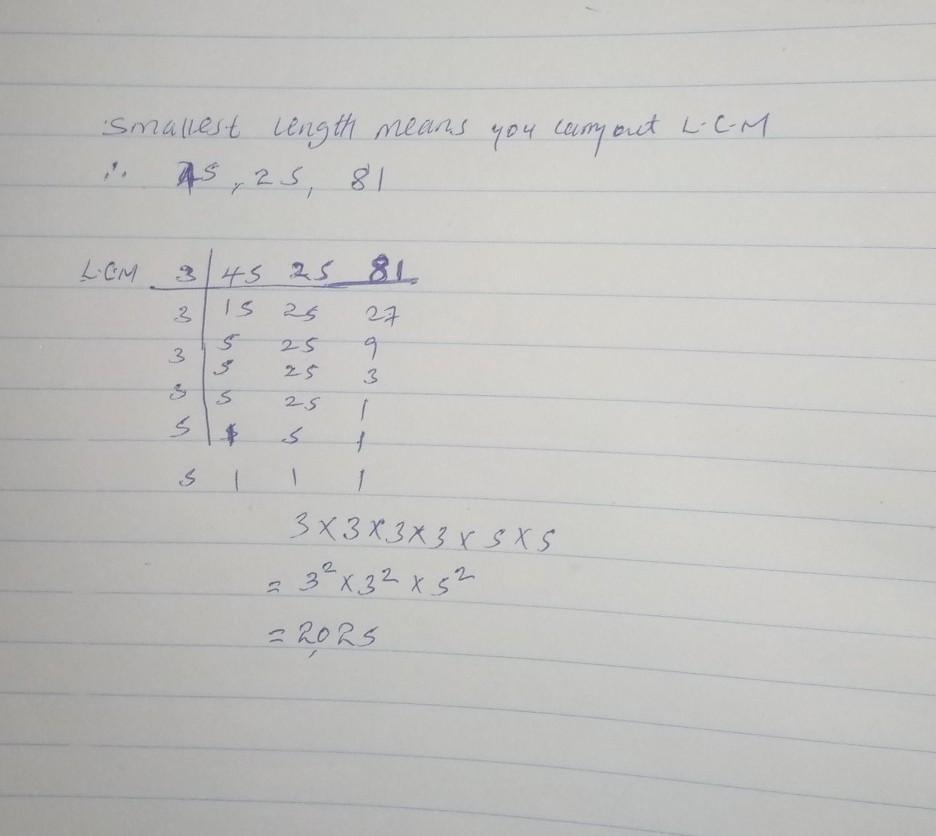 Smallest length means you carry out L.C.M
∴ 45, 25, 81
L.C.M 3 | 45 25 81
3 | 15 25 27
3 | 5 25 9
5 25 3
3 | 5 25 1
5 | 1 5 1
5 1 1 1
3 × 3 × 3 × 3 × 5 × 5
= 3² × 3² × 5²
= 2,025